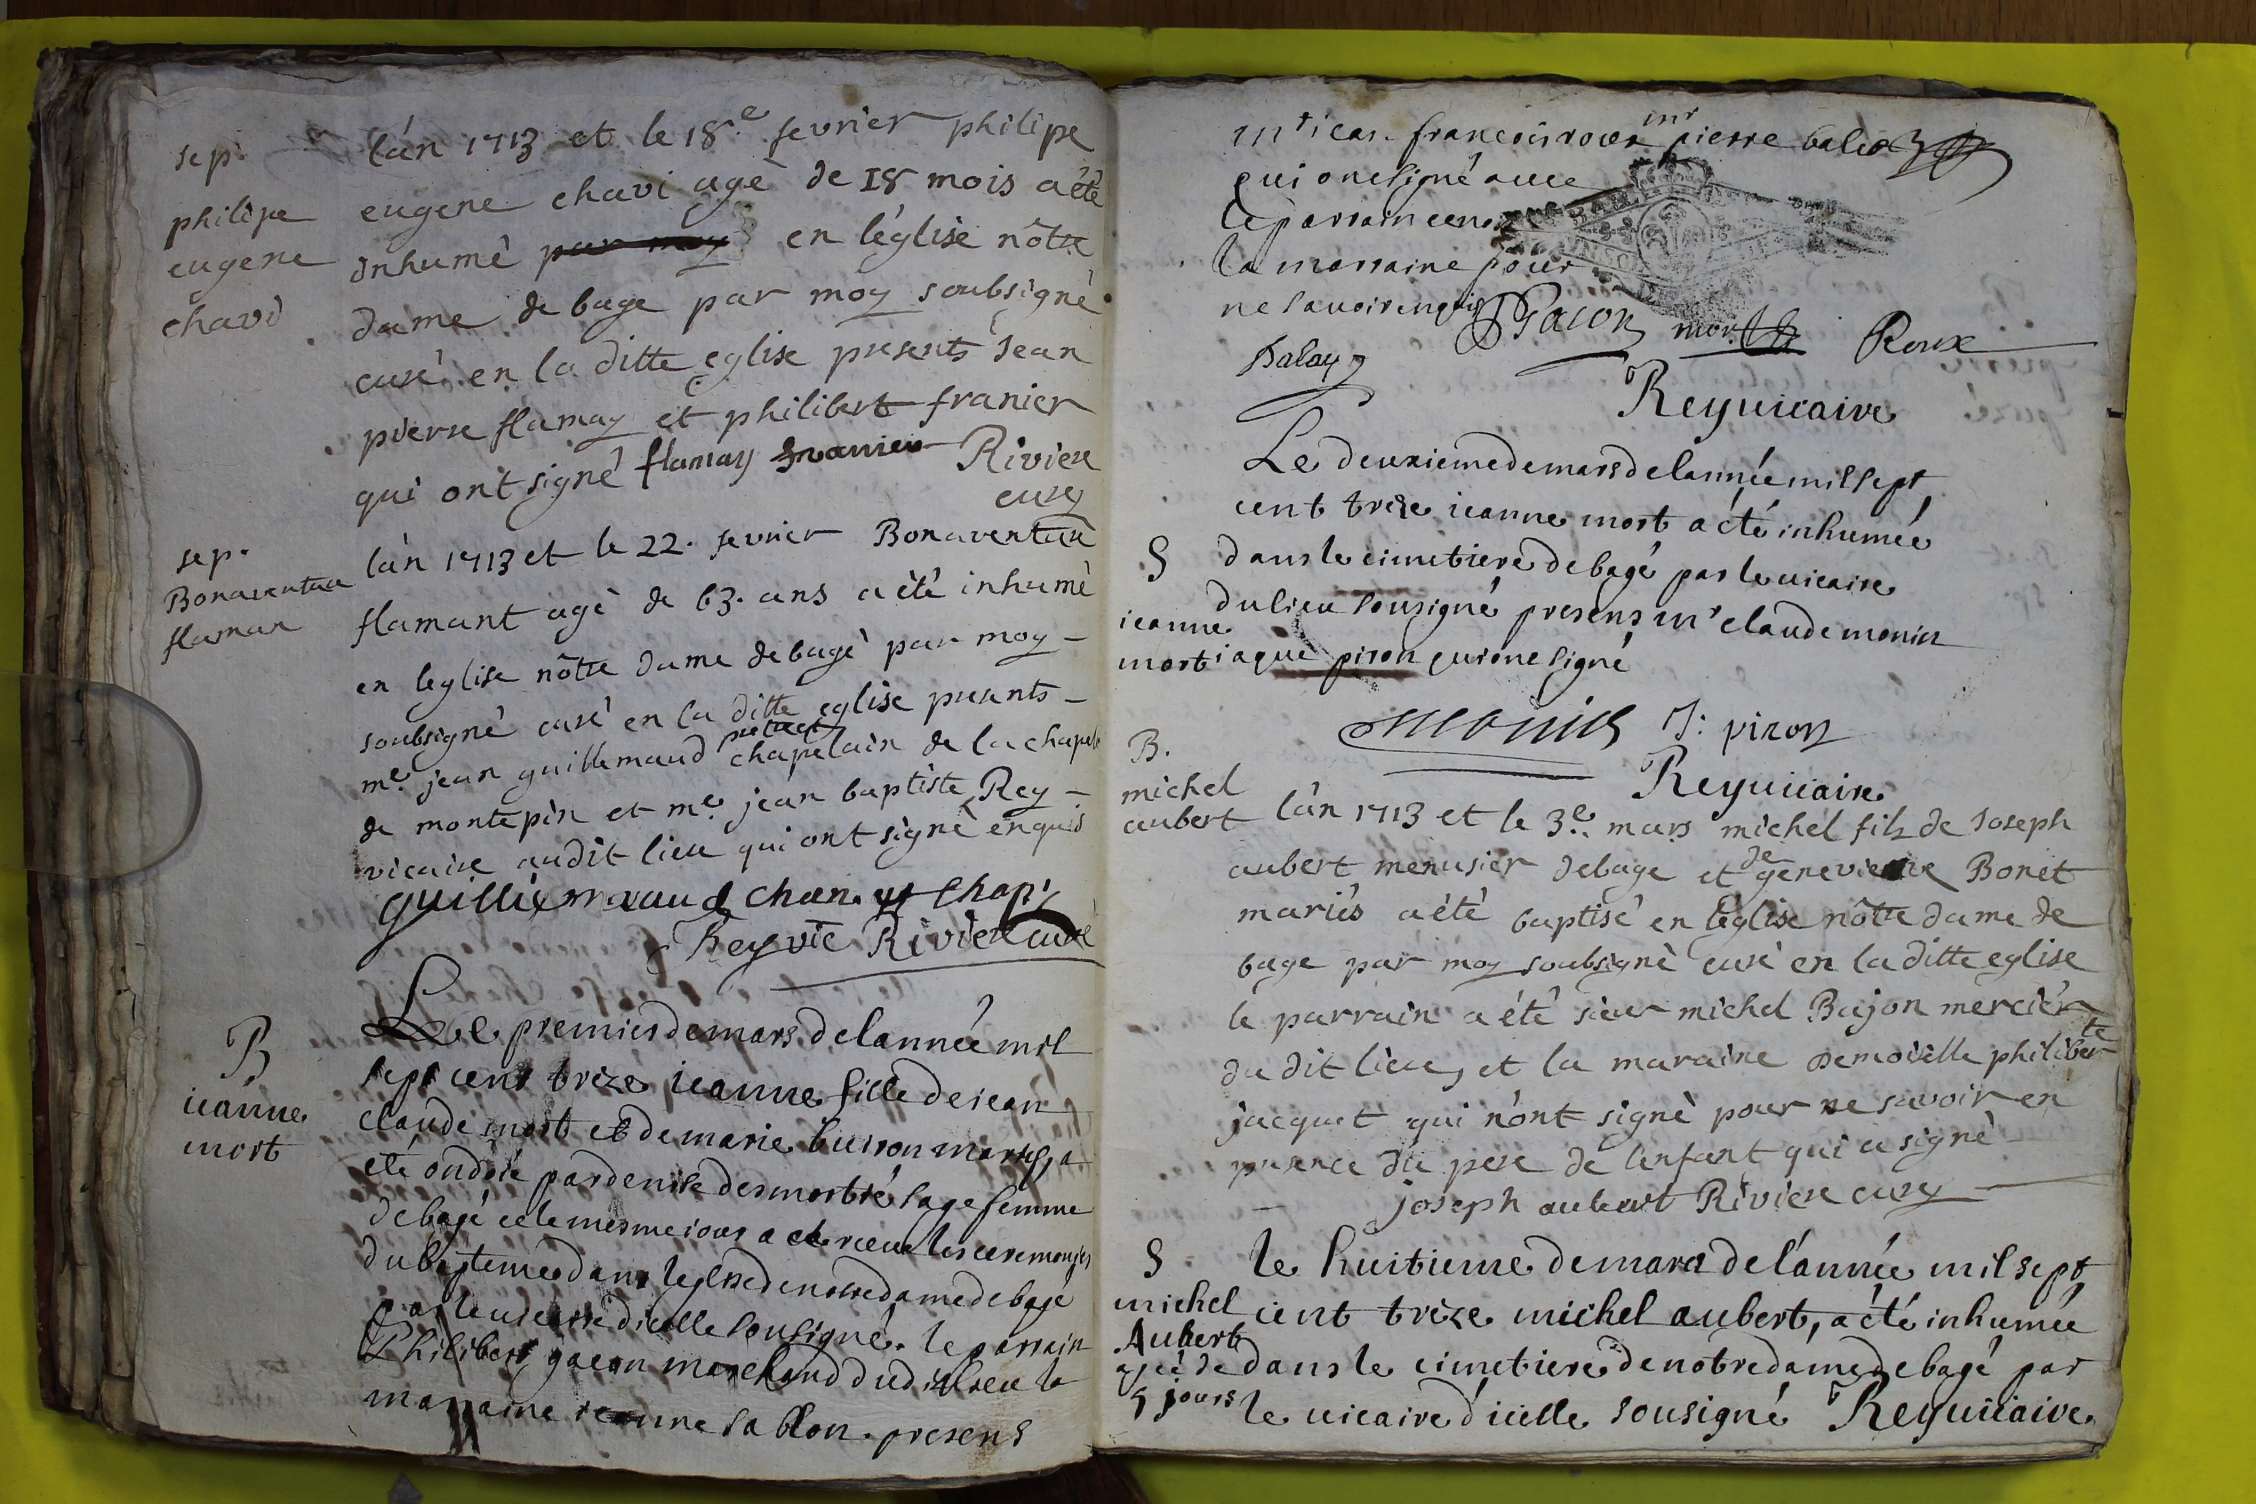 sep.
philipe
eugene
chavi
l'án 1713 et le 18e fevrier philipe
eugene chavi agè de 18 mois a èté
inhumè par moy en l'église nôtre
dame de bage par moy soubsignè
curé en la ditte eglise presents Jean
pierre flamay et philibert franier
qui ont signé flamay franier Riviere
curé
sep.
Bonaventure
flaman
l'án 1713 et le 22. fevrier Bonaventure
flamant agè de 63. ans a èté inhumè
en leglise nôtre dame de bagè par moy
soubsignè curè en la ditte eglise presents
me. jean guillemaud chapelain de la chapele
de montepin et me. jean baptiste Rey
vicaire audit lieu qui ont signè enquis
guilliemaud chan. et chap.
Rey vic Riviere curé
B
ieanne
mort
Le premier de mars de lannée mil
sept cent treze ieanne fille de iean
claude mort et de marie buiron mariés, a
eté ondoié par denise desmortié sage femme
de bagé et le mesme iour a receu les ceremonies
du bapteme dans leglise de notre dame de bagé
par le vicaire dicelle sousigné. le parrain
Philibert gacon marchand dudit lieu la
marraine ieanne sablon. presens
mr iean francois roux mr pierre balay
qui ont signé avec
le parrain et non
la marraine pour
ne savoir enquis PGacon mort Roux
Balay
Rey vicaire
Le deuxieme de mars de lannée mil sept
cent treze ieanne mort a été inhumée
S
ieanne
mort
dans le cimetiere de bagé par le vicaire
du lieu sousigné presens mr claude monin
iaque piron qui ont signé
monin J: piron
Rey vicaire
B.
michel
aubert
l'án 1713 et le 3e. mars michel fils de Joseph
aubert menusier de bage et de genevieve Bonet
mariés a èté baptisé en l'église nôtre dame de
bage par moy soubsignè curè en la ditte eglise
le parrain a été sieur michel Bajon mercier
du dit lieu, et la maraine demoiselle philiberte
jacquet qui n'ont signè pour ne savoir en
presence du pere de l'enfant qui a signè
joseph aubert Riviere curé
S
michel
Aubert
agé de
5 jours
le huitieme de mars de l'année mil sept
cent treze michel aubert, a été inhumée
dans le cimetiere de notre dame de bagé par
le vicaire d'icelle sousigné Rey vicaire